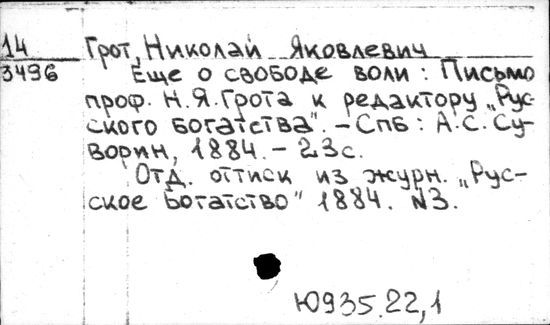 14
3496
Грот, Николай Яковлевич
Еще о свободе воли : Письмо
проф. Н.Я.Грота к редактору „Рус-
ского богатства". – Спб : А.С.Су-
ворин, 1884. – 23с.
Отд. оттиск из журн. „Рус-
ское богатство" 1884. №3.
Ю935.22,1